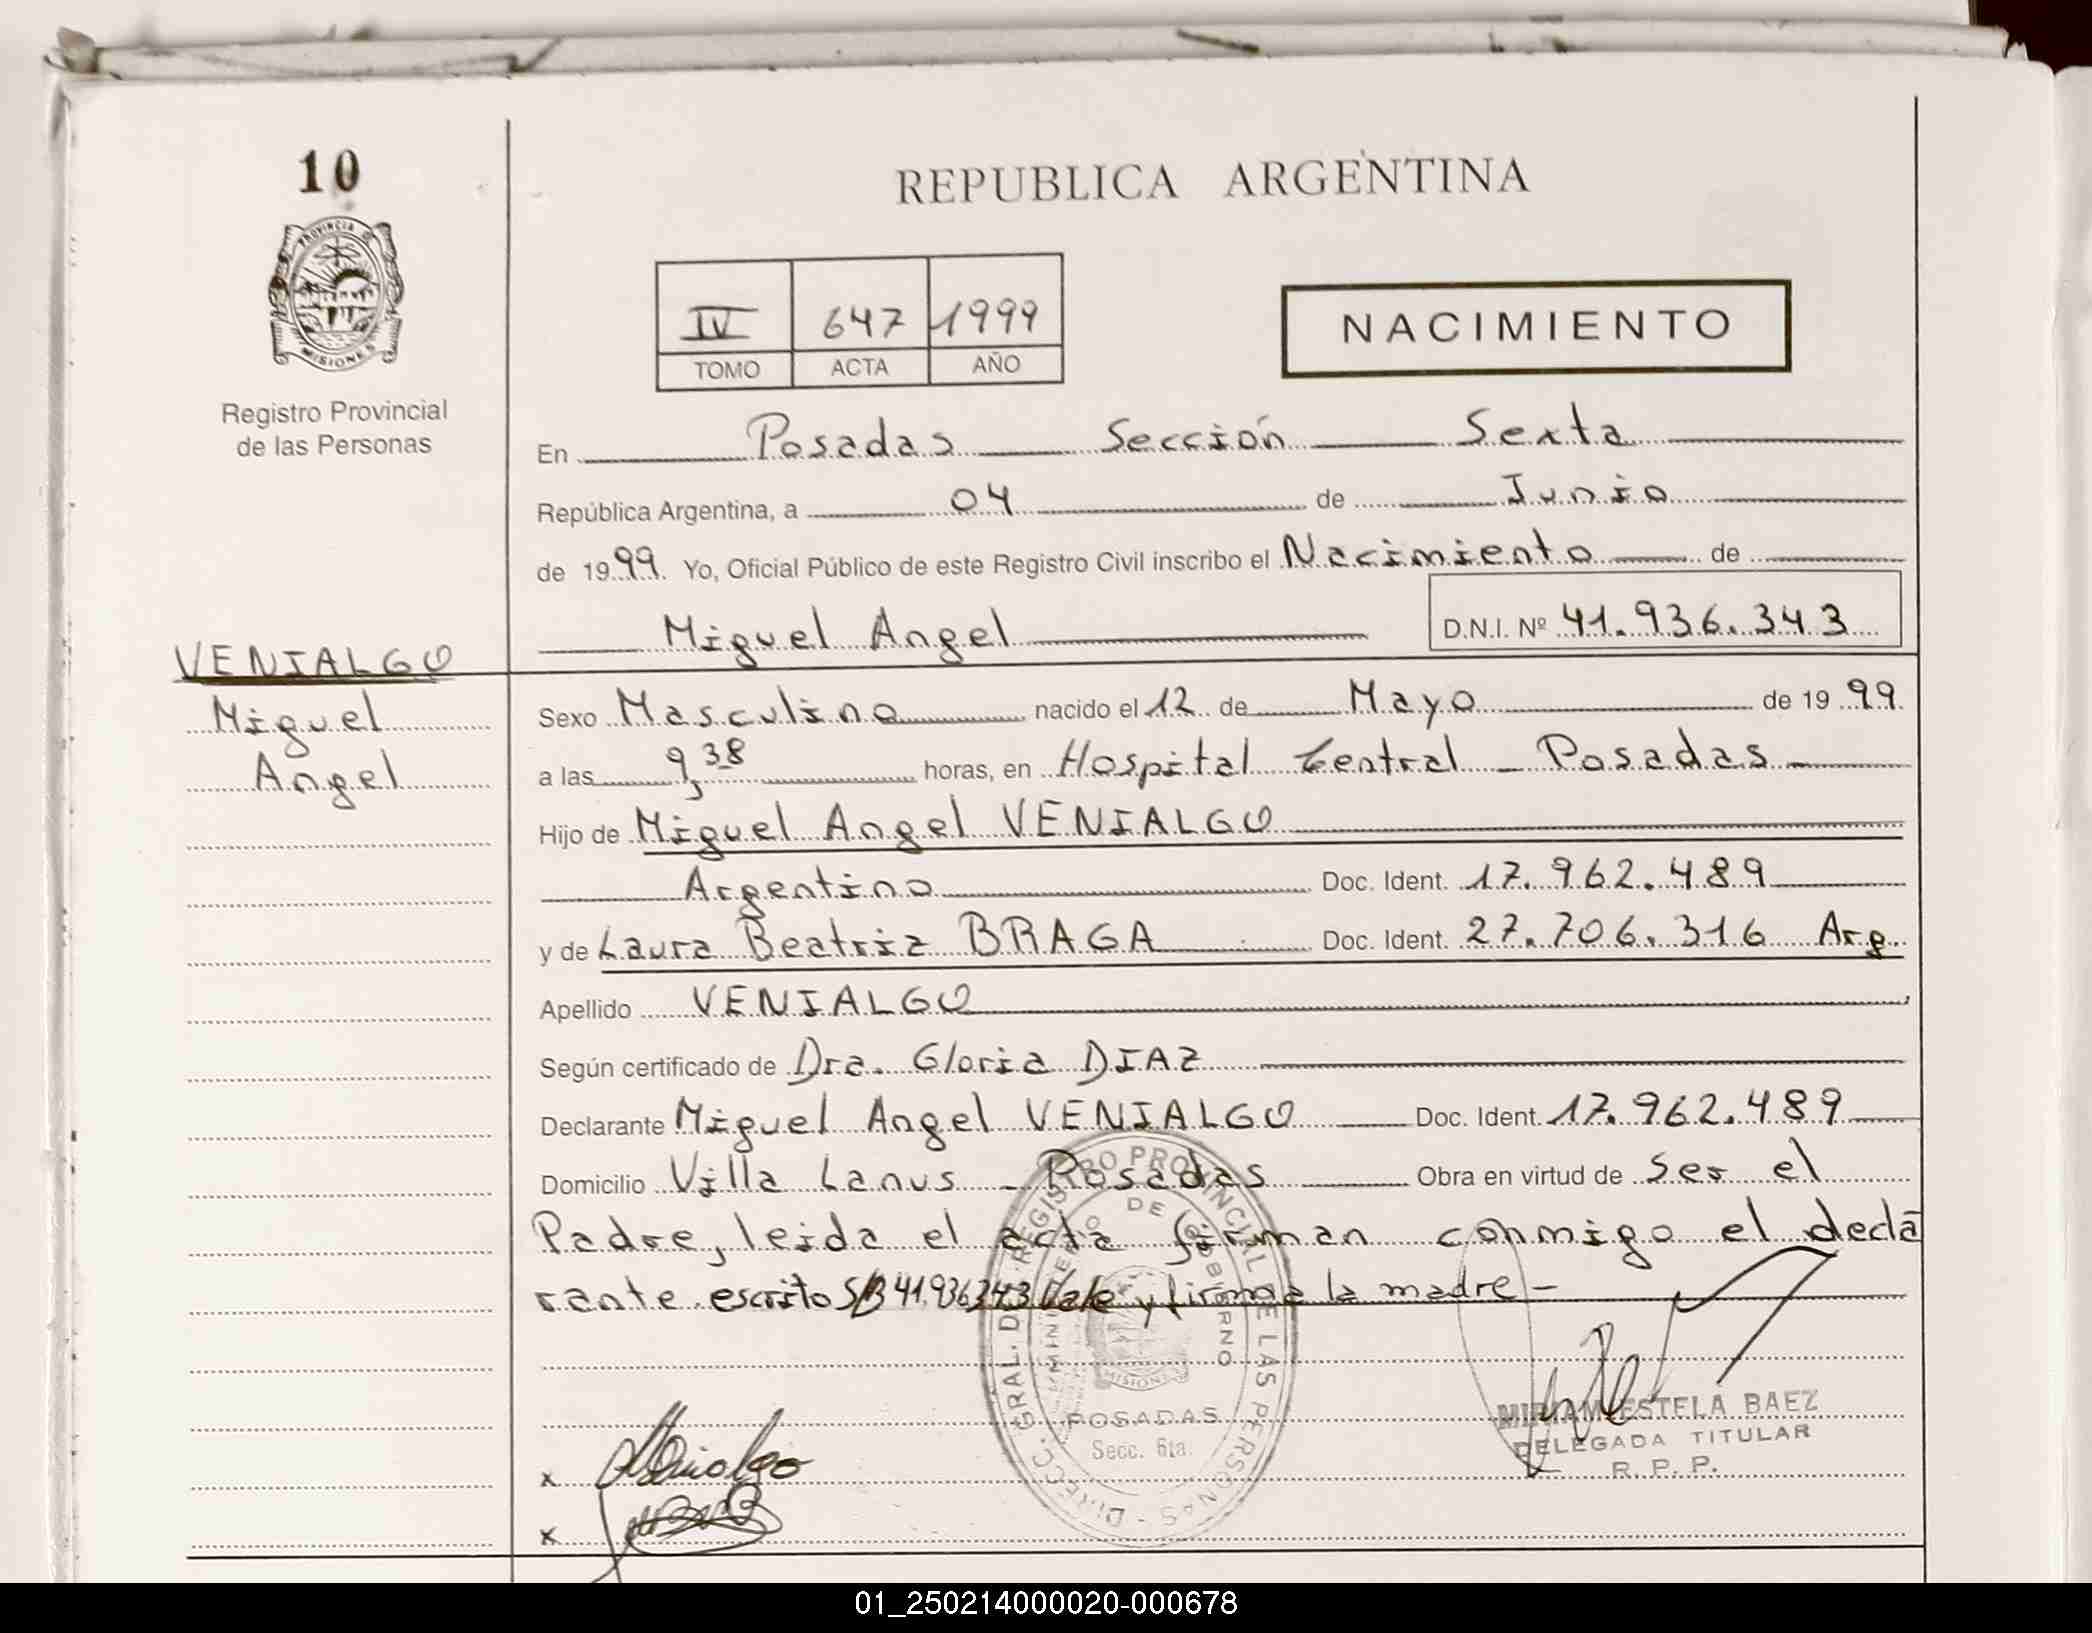 10
REPUBLICA ARGENTINA
PROVINCIA D
MISIONES
IV 647 1999
TOMO ACTA AÑO
NACIMIENTO
Registro Provincial
de las Personas
En Posadas Sección Sexta
República Argentina, a 04 de Junio
de 1999. Yo, Oficial Público de este Registro Civil inscribo el Nacimiento de
Miguel Angel D.N.I. Nº 41.936.343
VENIALGO
Miguel
Angel
Sexo Masculino nacido el 12 de Mayo de 1999.
a las 9,38 horas, en Hospital Central - Posadas
Hijo de Miguel Angel VENIALGO
Argentino Doc. Ident. 17.962.489
y de Laura Beatriz BRAGA Doc. Ident. 27.706.316 Arg.
Apellido VENIALGO
Según certificado de Dra. Gloria DIAZ
Declarante Miguel Angel VENIALGO Doc. Ident. 17.962.489
Domicilio Villa Lanus - Posadas Obra en virtud de Ser el
Padre, leida el acta firman conmigo el decla
rante escrito S/B 41.936.343 Vale y firma la madre -
DIRECC. GRAL. DE REGISTRO PROVINCIAL DE LAS PERSONAS
MINISTERIO DE GOBIERNO
MISIONES
POSADAS
Secc. 6ta.
MIRIAM ESTELA BAEZ
DELEGADA TITULAR
R. P. P.
x
x
01_250214000020-000678